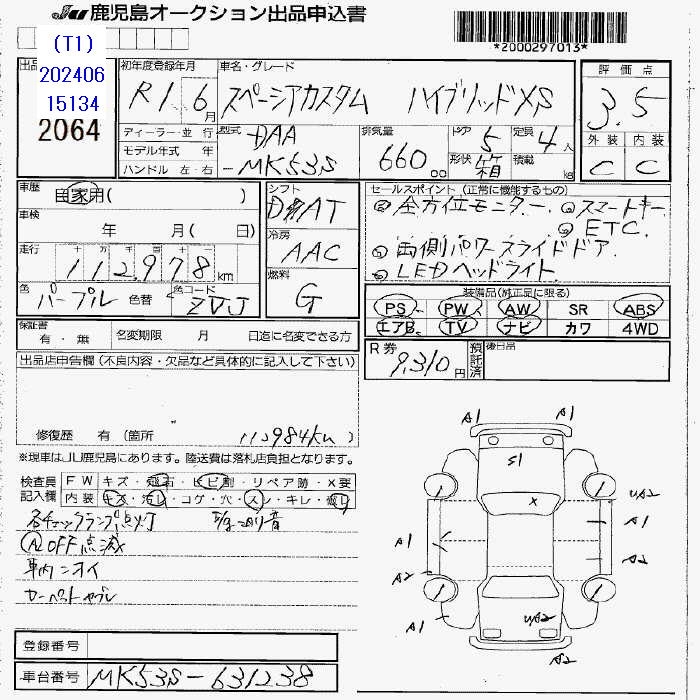 JU 鹿児島オークション出品申込書
*2000297013*
(T1)
202406
15134
2064
初年度登録年月
R1 6月
車名・グレード
スペーシアカスタム ハイブリッドXS
評価点
3.5
外装 内装
C C
ディーラー・並行
モデル年式 年
ハンドル 左・右
型式
DAA
-MK53S
排気量
660 cc
ドア
5
形状
箱
定員
4人
積載
kg
車歴
自家用( )
車検
年 月( 日)
走行
112,978 km
色
パープル
色替
色コード
ZVJ
シフト
AT
冷房
AAC
燃料
G
セールスポイント(正常に機能するもの)
全方位モニター
スマートキー
ETC
両側パワースライドドア
LEDヘッドライト
装備品(純正品に限る)
PS PW AW SR ABS
エアB TV ナビ カワ 4WD
保証書
有・無
名変期限 月 日迄に名変できる方
R券
9,310円
預託済
後日品
出品店申告欄(不良内容・欠品など具体的に記入して下さい)
修復歴 有(箇所 )
112984km
※現車はJU鹿児島にあります。陸送費は落札店負担となります。
検査員記入欄
FW キズ・飛石・ヒビ割・リペア跡・X要
内装 キズ・汚レ・コゲ・穴・スレ・キレ・破レ
各チェックランプ点灯
OFF点滅
車内ニオイ
カーペットヤブレ
A1
A1
S1
X
UA2
A1
A1
A2
A2
A1
UA2
A2
登録番号
車台番号
MK53S-631238